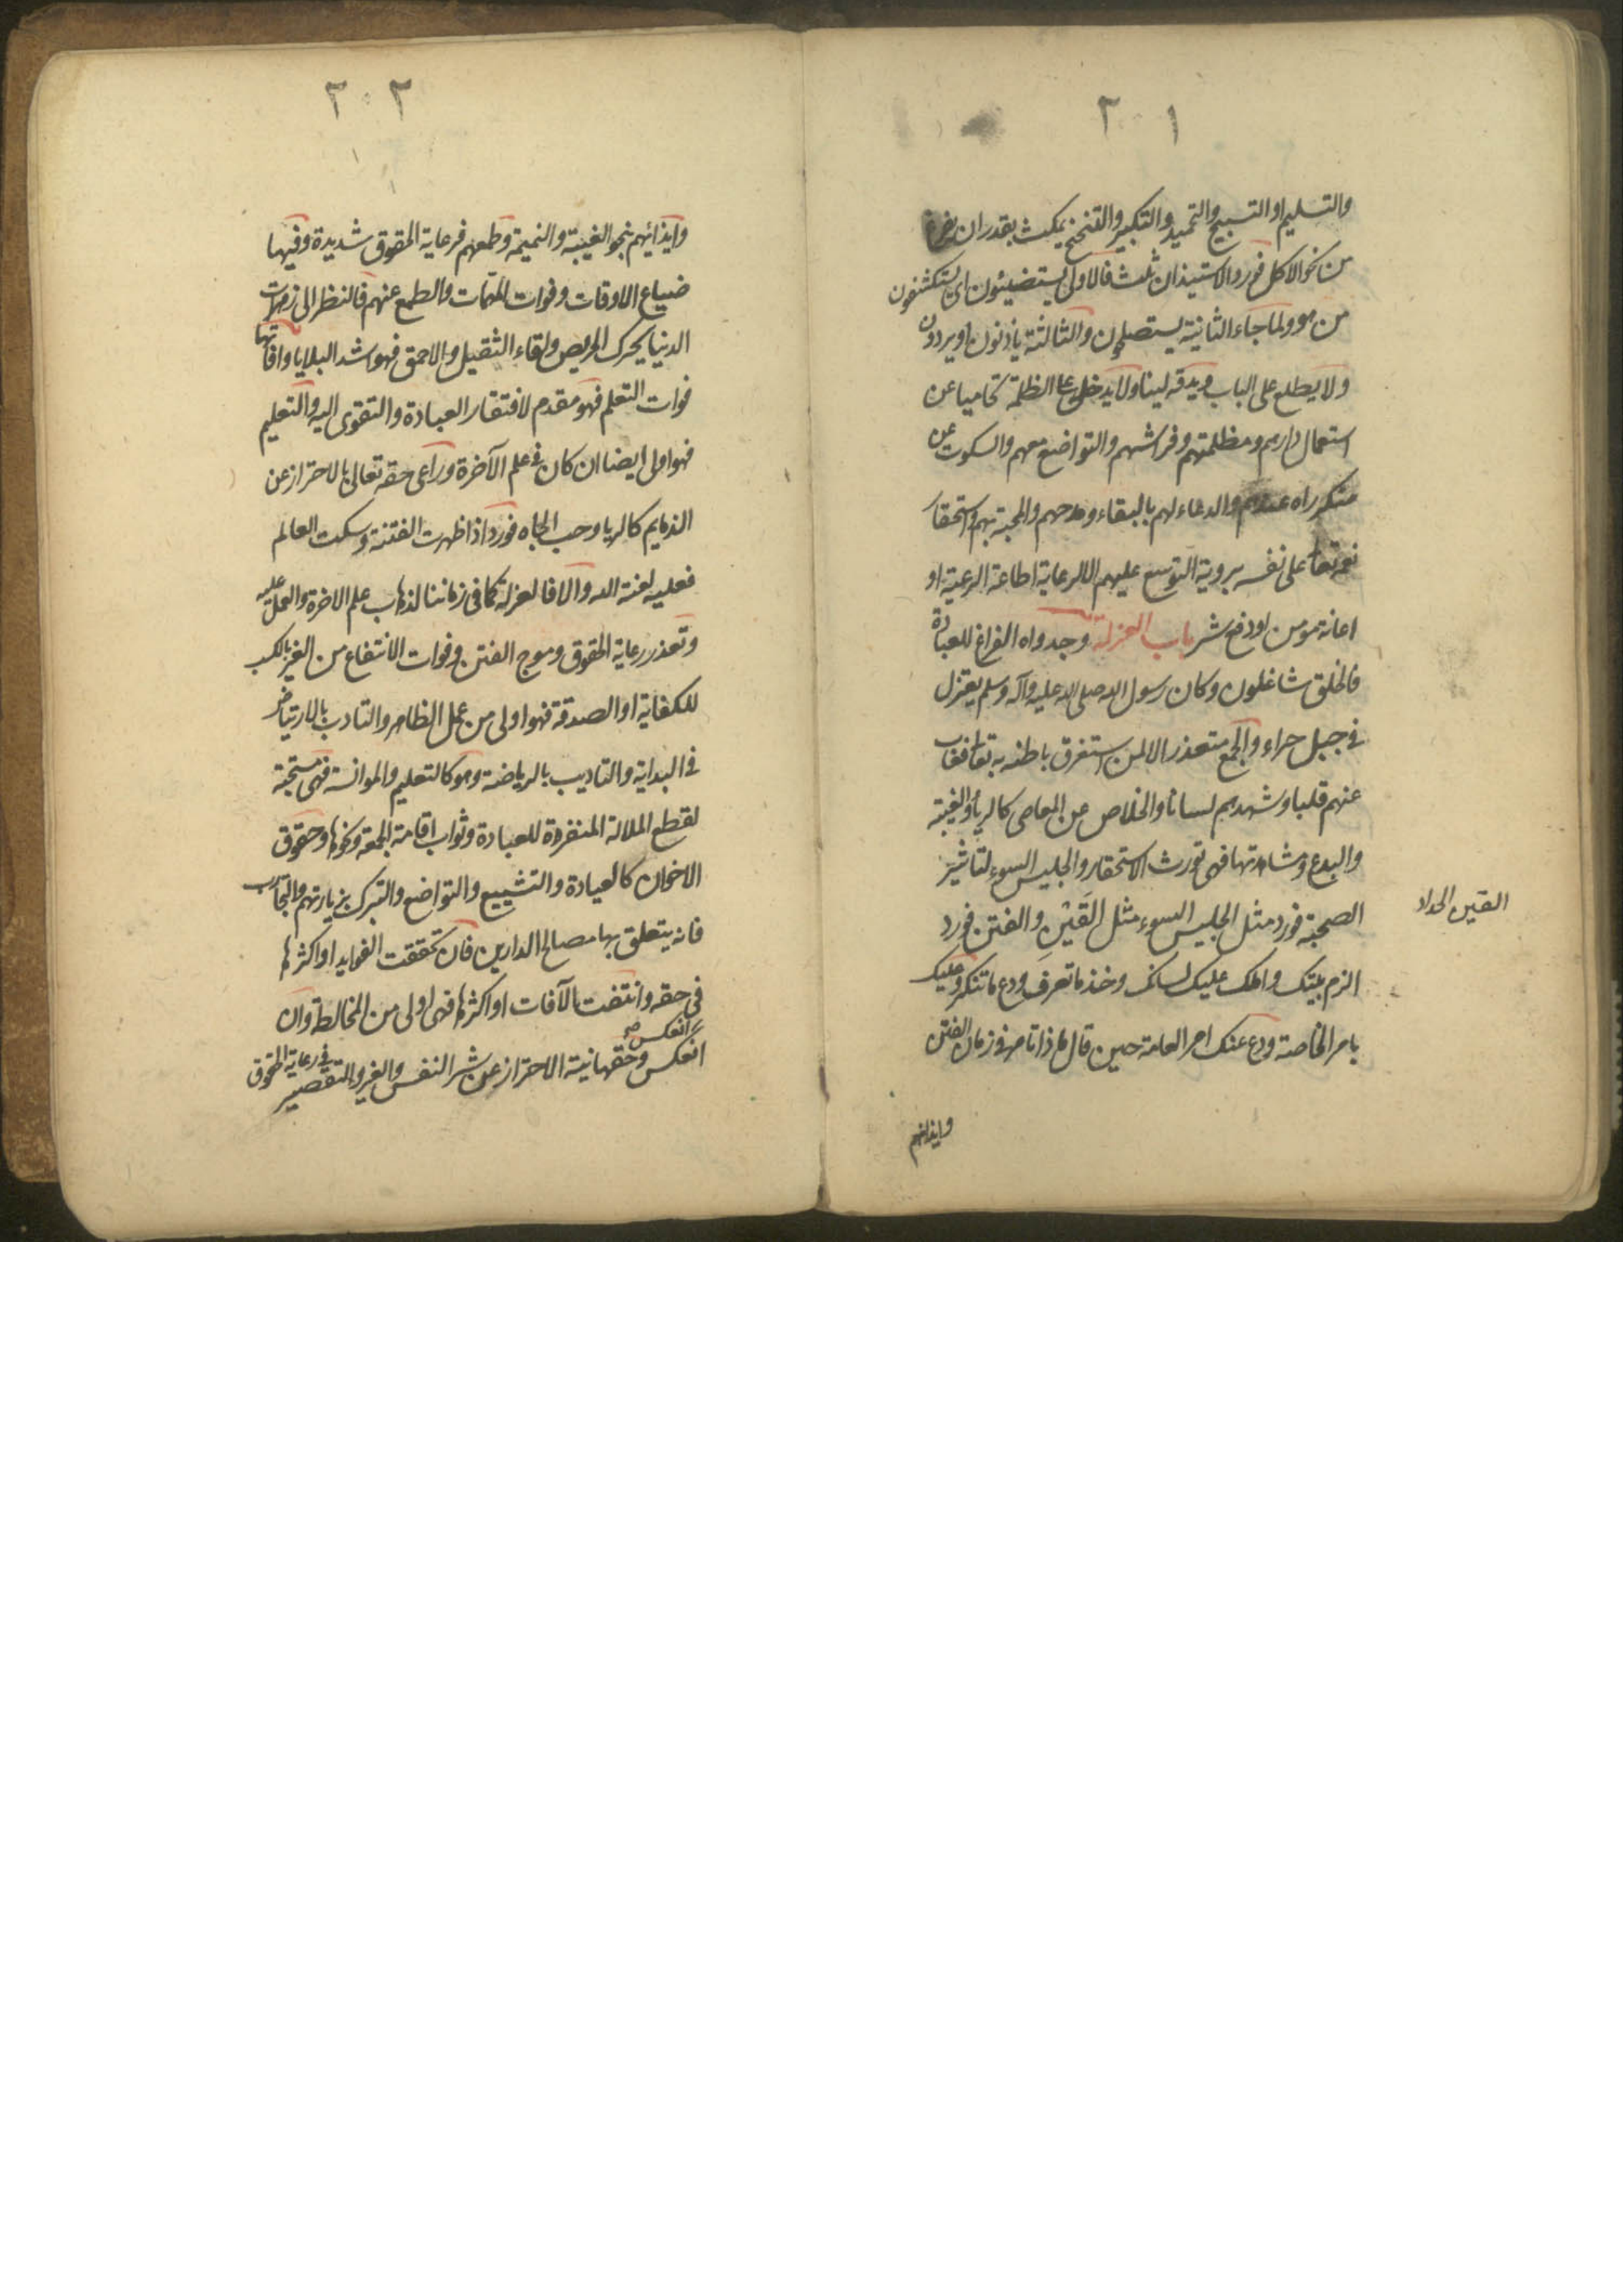 ٢٠١
والتسليم او التسبيح والتحميد والتكبير والتنحنح يمكث بقدر ان يفرغ
من نحو الاكل فورد الاستيذان ثلث فالاولى يستضيئون اى يستكشفون
من هو ولما جاء الثانية يستصلحون والثالثة ياذنون او يردون
ولا يطلع على الباب ويدقه لينا ولا يدخل على الظلمة تحاميا عن
استعمال دارهم ومظلمتهم وفرشهم والتواضع معهم والسكوت عن
منكر راه عندهم والدعاء لهم بالبقاء ومدحهم والمحبة بهم واستحقار
نعمه تعا على نفسه بروية التوسع عليهم الا لرعاية اطاعة الرعية او
اعانة مومن او دفع شر باب العزلة وجدواه الفراغ للعبادة
فالخلق شاغلون وكان رسول الله صلى الله عليه وآله وسلم يعتزل
فى جبل حراء والجمع متعذر الا لمن استغرق باطنه به تعا فغاب
عنهم قلبا وشهدهم لسانا والخلاص عن المعاصى كالريا والغيبة
والبدع ومشاهدتها فهى تورث الاستحقار والجليس السوء لتاثير
الصحبة فورد مثل الجليس السوء مثل القَيْنِ والفتن فورد
الزم بيتك واملك عليك لسانك وخذ ما تعرف ودع ما تنكر وعليك
بامر الخاصة ودع عنك امر العامة حين قال ما ذا تامر فى زمان الفتن
القين الحداد
وايذائهم
٢٠٢
وايذائهم بنحو الغيبة والنميمة وطمعهم فرعاية الحقوق شديدة وفيها
ضياع الاوقات وفوات المهمات والطمع عنهم فالنظر الى زهرات
الدنيا يحرك الحريص ولقاء الثقيل والاحمق فهو اشد البلايا وافاتها
فوات التعلم فهو مقدم لافتقار العبادة والتقوى اليه والتعليم
فهو اولى ايضا ان كان فى علم الآخرة وراعى حقه تعالى بالاحتراز عن
الذمايم كالريا وحب الجاه فورد اذا ظهرت الفتنة وسكت العالم
فعليه لعنة الله والا فالعزلة كما فى زماننا لذهاب علم الاخرة والعمل عليه
وتعذر رعاية الحقوق وموج الفتن وفوات الانتفاع من الغير بالكسب
للكفاية او الصدقة فهو اولى من عمل الظاهر والتادب بالارتياض
فى البداية والتاديب بالرياضة وهو كالتعليم والموانسة فهى مستحبة
لقطع الملالة المنفردة للعبادة وثواب اقامة الجمعة ونحوها وحقوق
الاخوان كالعيادة والتشييع والتواضع والتبرك بزيارتهم والتجارب
فانه يتعلق بها مصالح الدارين فان تحققت الفوايد او اكثرها
فى حقه وانتفت الآفات او اكثرها فهى اولى من المخالطة وان
انعكس صح
انعكس وحقها نية الاحتراز عن شر النفس والغير والتقصير
فى رعاية الحقوق